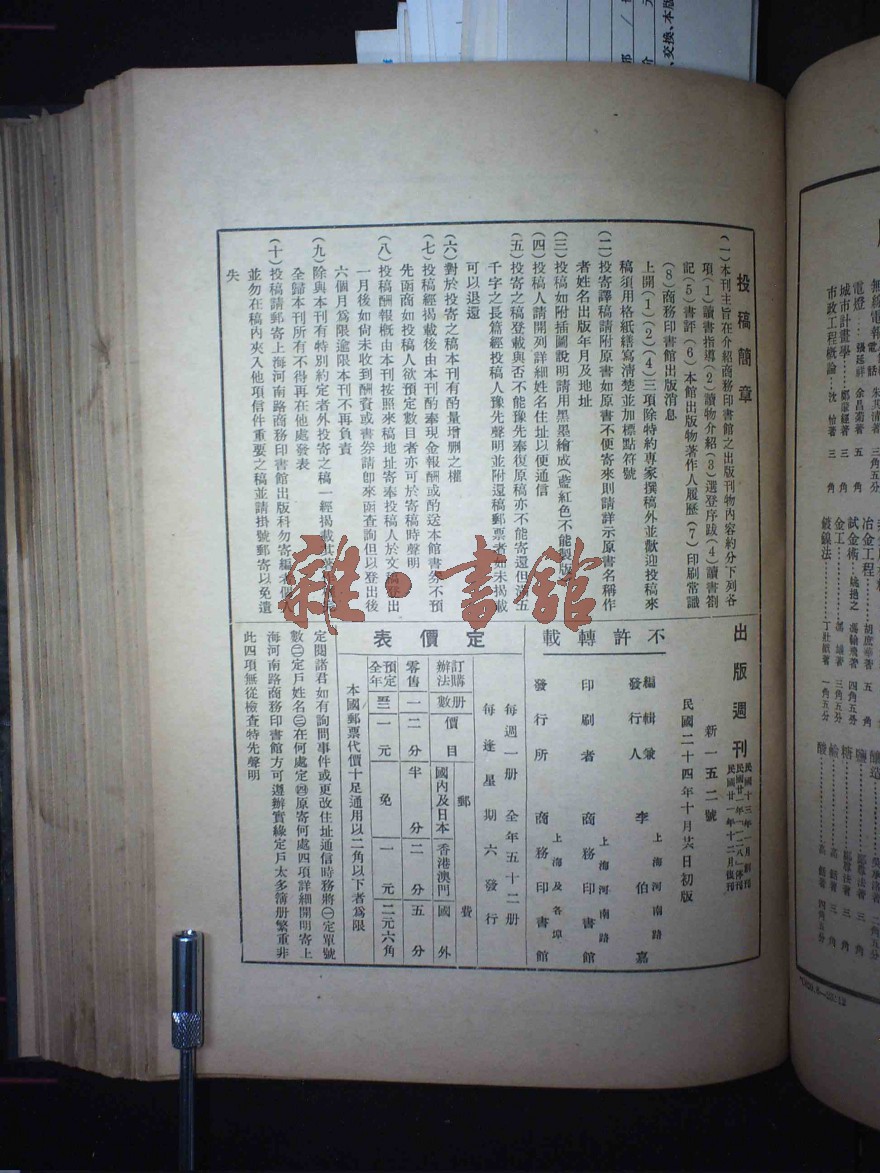 投稿簡章
(一)本刊主旨在介紹商務印書館之出版刊物內容約分下列各
項(1)讀書指導(2)讀物介紹(3)選登序跋(4)讀書劄
記(5)書評(6)本館出版物著作人履歷(7)印刷常識
(8)商務印書館出版消息
上開(1)(2)(4)三項除特約專家撰稿外並歡迎投稿來
稿須用格紙繕寫清楚並加標點符號
(二)投寄譯稿請附原書如原書不便寄來則請詳示原書名稱作
者姓名出版年月及地址
(三)投稿如附插圖說明請用黑墨繪成(藍紅色不能製版)
(四)投稿人請開列詳細姓名住址以便通信
(五)投寄之稿登載與否不能豫先奉復原稿亦不能寄還但滿五
千字之長篇經投稿人豫先聲明並附還稿郵票者如未揭載
可以退還
(六)對於投寄之稿本刊有酌量增刪之權
(七)投稿經揭載後由本刊酌奉現金報酬或酌送本館書券不預
先函商如投稿人欲預定數目者亦可於寄稿時聲明
(八)投稿酬報概由本刊按照來稿地址寄奉投稿人於文稿登出
一月後如尚未收到酬資或書券請卽來函查詢但以登出後
六個月為限逾限本刊不再負責
(九)除與本刊有特別約定者外投寄之稿一經揭載其著
全歸本刊所有不得再在他處發表
(十)投稿請郵寄上海河南路商務印書館出版科勿寄編者個人
並勿在稿內夾入他項信件重要之稿並請掛號郵寄以免遺
失
出版週刊
民國十三年一月創刊
民國廿一年一二八停刊
民國廿一年十二月復刊
新一五二號
民國二十四年十月廿六日初版
不許轉載
編輯兼發行人 李伯嘉
上海河南路
印刷者 商務印書館
上海河南路
發行所 商務印書館
上海及各埠
每週一册 全年五十二册
每逢星期六發行
定價表
訂購辦法 册數 價目 郵費
國內及日本 香港澳門 國外
零售 一 二分 半分 二分 五分
預定全年 一元 免 一元 二元六角
本國郵票代價十足通用以二角以下者為限
定閱諸君如有詢問事件或更改住址通信時務將㊀定單號
數㊁定戶姓名㊂在何處定㊃原寄何處四項詳細開明寄上
海河南路商務印書館方可遵辦實緣定戶太多簿册繁重非
此四項無從檢查特先聲明
雜·書館
電燈 張延祥 金昌葡著 五角
城市計畫學 鄭肇經著 三角
市政工程概論 沈怡著 三角
冶金工程 胡庶華著 五角
鍍鎳法 三角五分
一角五分
三角
四角五分